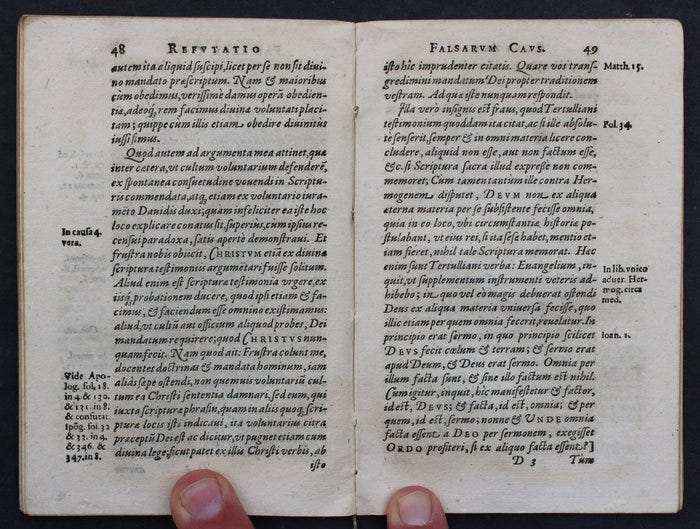 48 REFVTATIO
autem ita aliquid suscipi, licet per se non sit divi-
no mandato præscriptum. Nam & maioribus
cùm obedimus, verissimè damus operã obedien-
tiæ, adeoq́, rem facimus divinæ voluntati placi-
tam; quippe cum illis etiam obedire divinitùs
iussi simus.
Quod autem ad argumenta mea attinet, quæ
inter cætera, vt cultum voluntarium defenderẽ,
ex spontanea consuetudine vovendi in Scriptu-
ris commendata, atq, etiam ex voluntario iura-
mẽto Davidis duxi; quàm infeliciter ea iste hoc
loco explicare conatus sit, superiùs, cum ipsius re-
censui paradoxa, satis apertè demonstravi. Et
frustra nobis obiicit, CHRISTVM etiã ex divinæ
scripturæ testimoniis argumẽtari fuisse solitum.
Aliud enim est scripturæ testimonia vrgere, ex
iisq́, probationem ducere, quod ipsi etiam & fa-
cimus, & faciendum esse omnino existimamus:
aliud, vt cultũ aut officium aliquod probes, Dei
mandatum requirere; quod CHRISTVS nun-
quam fecit. Nam quod ait: Frustra colunt me,
docentes doctrinas & mandata hominum, iam
aliàs sæpe ostendi, non quemuis voluntariũ cul-
tum ea Christi sententia damnari, sed eum, qui
iuxta scripturæ phrasin, quam in aliis quoq, scri-
pturæ locis isti indicavi, ita voluntarius citra
præceptũ Dei est ac dicitur, vt pugnet etiam cum
divina lege; sicut patet ex illis Christi verbis, ab
isto
In causa 4.
vera.
Vide Apo-
log. fol. 18.
in 4 & 130.
& 131. in 8.
& confutat.
ipõg. fol. 32
& 33. in 4.
& 346. &
347. in 8.
FALSARVM CAVS. 49
isto hic imprudenter citatis. Quare vos trans-
gredimini mandatum Dei propter traditionem
vestram. Ad quæ iste nunquam respondit.
Illa verò insignis est fraus, quod Tertulliani
testimonium quoddam ita citat, ac si ille absolu-
tè senserit, semper & in omni materia licere con-
cludere, aliquid non esse, aut non factum esse,
&c. si Scriptura sacra illud expressè non com-
memoret; Cum tamen tantùm ille contra Her-
mogenem disputet, DEVM non ex aliqua
æterna materia per se subsistente fecisse omnia,
quia in eo loco, vbi circumstantiæ historiæ po-
stulabant, vt eius rei, si ita sese habet, mentio et-
iam fieret, nihil tale Scriptura memorat. Hæc
enim sunt Tertulliani verba: Euangelium, in-
quit, vt supplementum instrumenti veteris ad-
hibebo; in quo vel eò magis debuerat ostendi
Deus ex aliqua materia vniversa fecisse, quo
illic etiam per quem omnia fecerit, revelatur. In
principio erat sermo, in quo principio scilicet
DEVS fecit cœlum & terram; & sermo erat
apud Deum, & Deus erat sermo. Omnia per
illum facta sunt, & sine illo factum est nihil.
Cum igitur, inquit, hic manifestetur & factor,
id est, DEVS; & facta, id est, omnia; & per
quem, id est, sermo; nonne & VNDE omnia
facta essent à DEO per sermonem, exegisset
ORDO profiteri, si ex aliquo facta essent?]
D 3 Tum
Matth. 15.
Fol. 34.
In lib. vnico
aduer. Her-
mog. circa
med.
Ioan. 1.